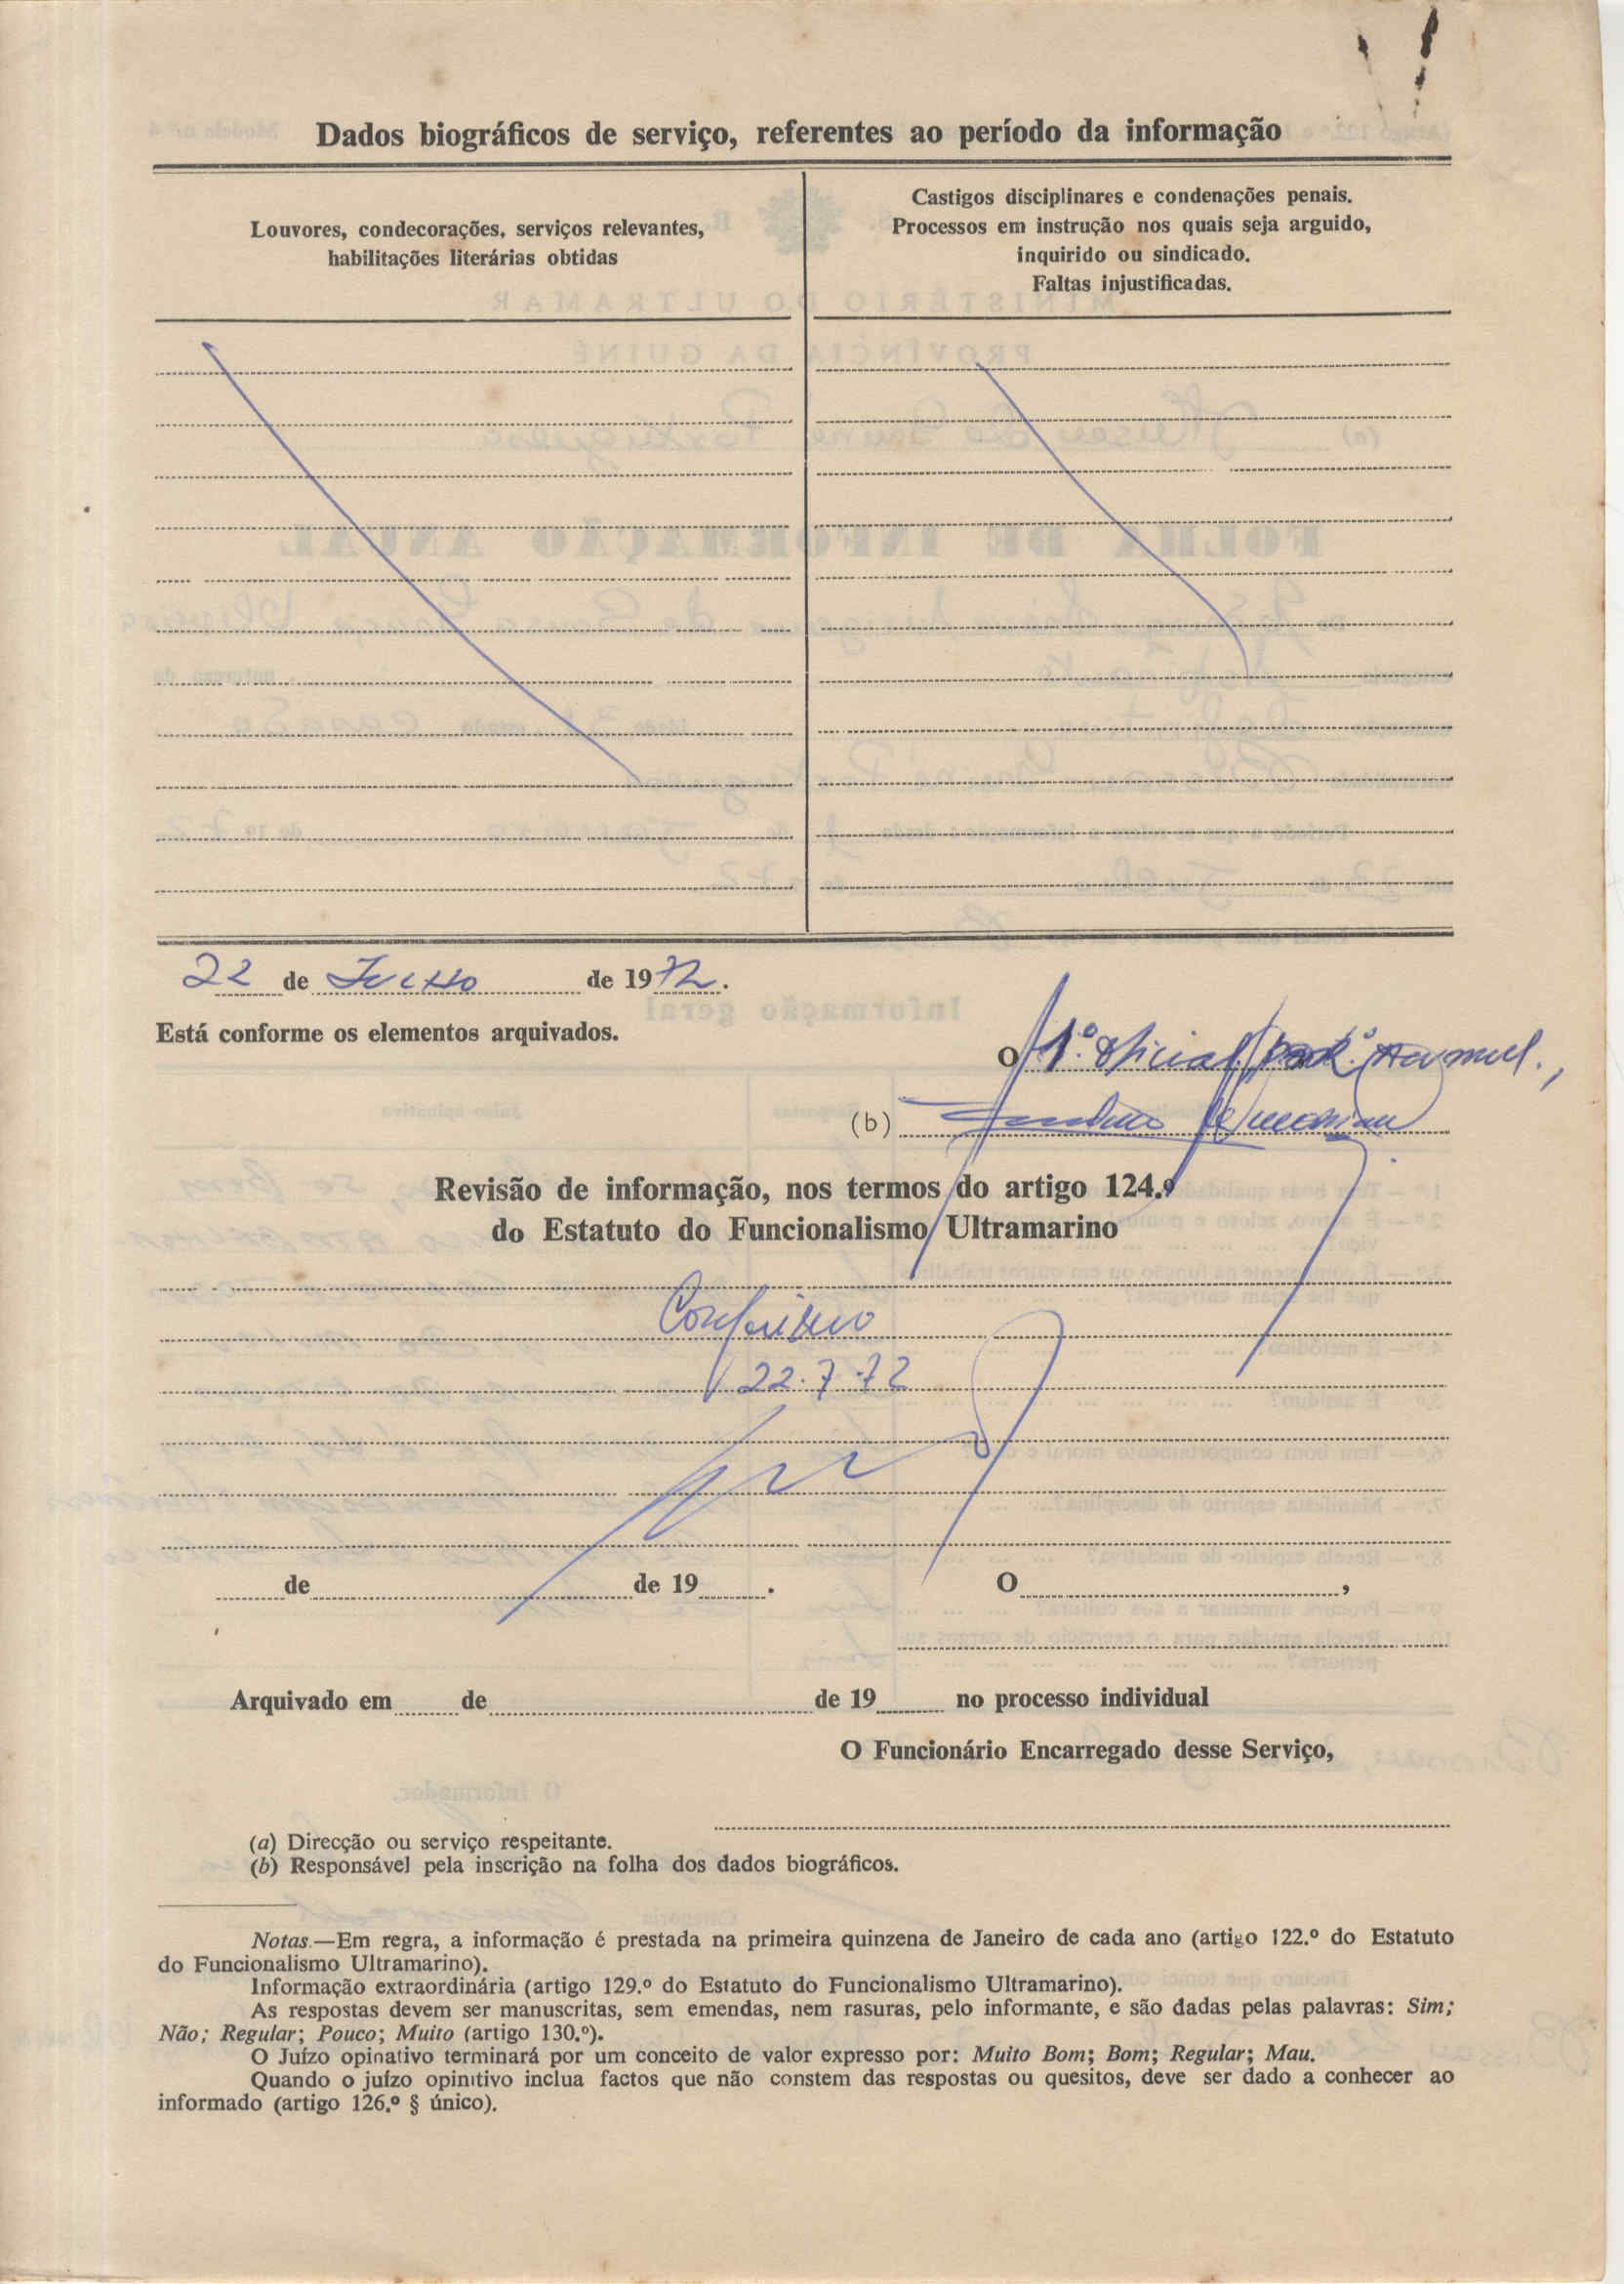 Dados biográficos de serviço, referentes ao período da informação
Louvores, condecorações, serviços relevantes,
habilitações literárias obtidas
Castigos disciplinares e condenações penais.
Processos em instrução nos quais seja arguido,
inquirido ou sindicado.
Faltas injustificadas.
22 de Julho de 1972.
Está conforme os elementos arquivados.
O 1.º Oficial
(b)
Revisão de informação, nos termos do artigo 124.º
do Estatuto do Funcionalismo Ultramarino
Confirmo
22.7.72
de de 19 .
O ,
Arquivado em de de 19 no processo individual
O Funcionário Encarregado desse Serviço,
(a) Direcção ou serviço respeitante.
(b) Responsável pela inscrição na folha dos dados biográficos.
Notas.—Em regra, a informação é prestada na primeira quinzena de Janeiro de cada ano (artigo 122.º do Estatuto
do Funcionalismo Ultramarino).
Informação extraordinária (artigo 129.º do Estatuto do Funcionalismo Ultramarino).
As respostas devem ser manuscritas, sem emendas, nem rasuras, pelo informante, e são dadas pelas palavras: Sim;
Não; Regular; Pouco; Muito (artigo 130.º).
O Juízo opinativo terminará por um conceito de valor expresso por: Muito Bom; Bom; Regular; Mau.
Quando o juízo opinitivo inclua factos que não constem das respostas ou quesitos, deve ser dado a conhecer ao
informado (artigo 126.º § único).